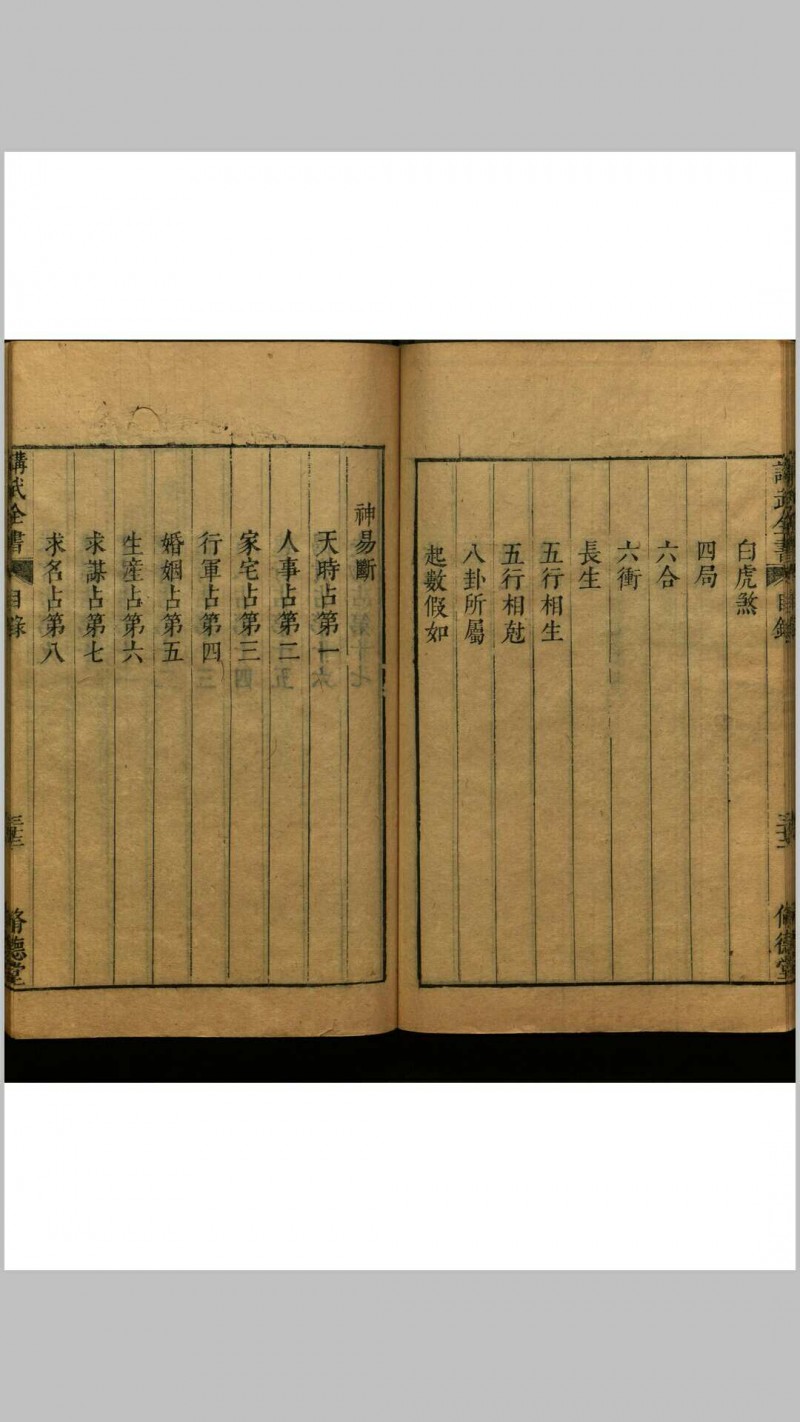 講武全書 目錄
脩德堂
白虎煞
四局
六合
六衝
長生
五行相生
五行相尅
八卦所屬
起數假如
神易斷
天時占第一
人事占第二
家宅占第三
行軍占第四
婚姻占第五
生産占第六
求謀占第七
求名占第八
講武全書 目錄
脩德堂